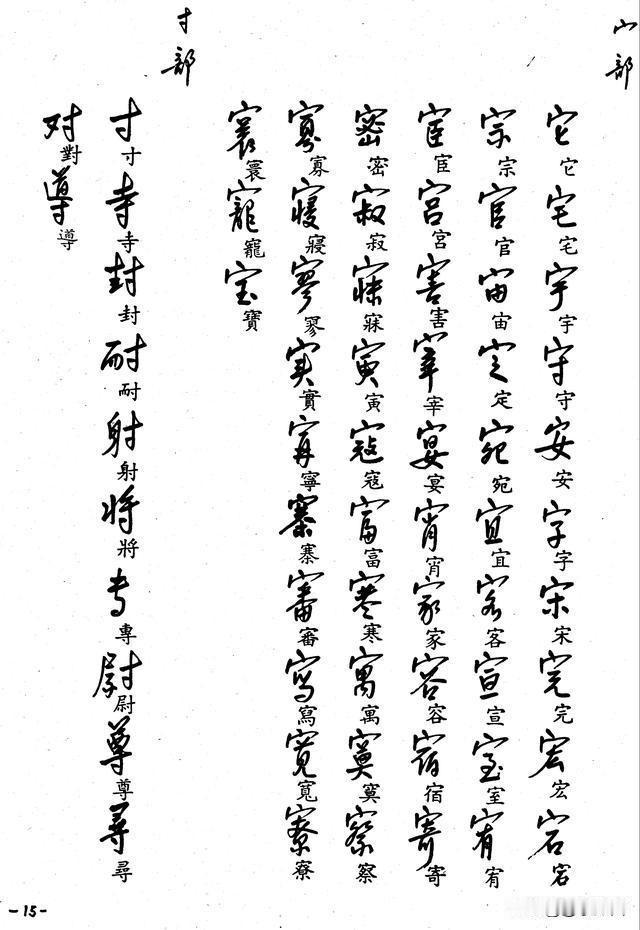 宀部
它它宅宅宇宇守守安安字字宋宋完完宏宏宕宕
宗宗官官宙宙定定宛宛宜宜客客宣宣室室宥宥
宦宦宮宮害害宰宰宴宴宵宵家家容容宿宿寄寄
密密寂寂寐寐寅寅寇寇富富寒寒寓寓寞寞察察
寡寡寢寢寥寥实實寧寧寨寨審審寫寫寬寬寮寮
寰寰寵寵宝寶
寸部
寸寸寺寺封封耐耐射射将將专專尉尉尊尊尋尋
对對導導
-15-